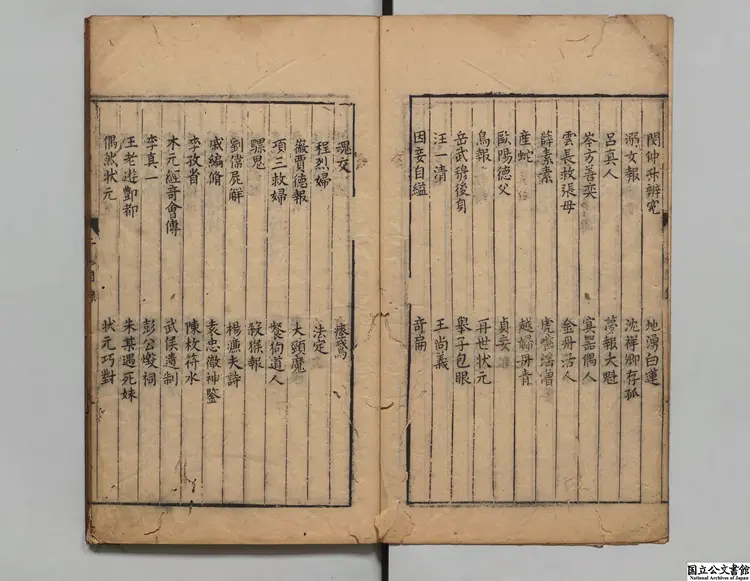 閔仲孫辨冤 地湧白蓮
溺女報 沈祥卿存孤
呂真人 夢報大魁
岑方善奕 冥器偶人
雲長救張母 金舟活人
薛素素 虎嚙淫僧
産蛇 越婦丹青
歐陽德父 貞妾
鳥報 再世狀元
岳武穆後身 擧子包眼
汪一清 王尚義
因妾自縊 奇扁
魂交
程烈婦 法定
徽賈德報 大頭魔
項三救婦 餐狗道人
騾鬼 殺猴報
劉儒屍解 楊漁夫詩
戚編脩 袁忠徹神鑒
李孜省 陳枚符水
木元經奇會傳 武侯遺制
李真一 彭公斈祠
王老遊酆都 朱某遇死妹
偶然狀元 狀元巧對
国立公文書館
National Archives of Japan